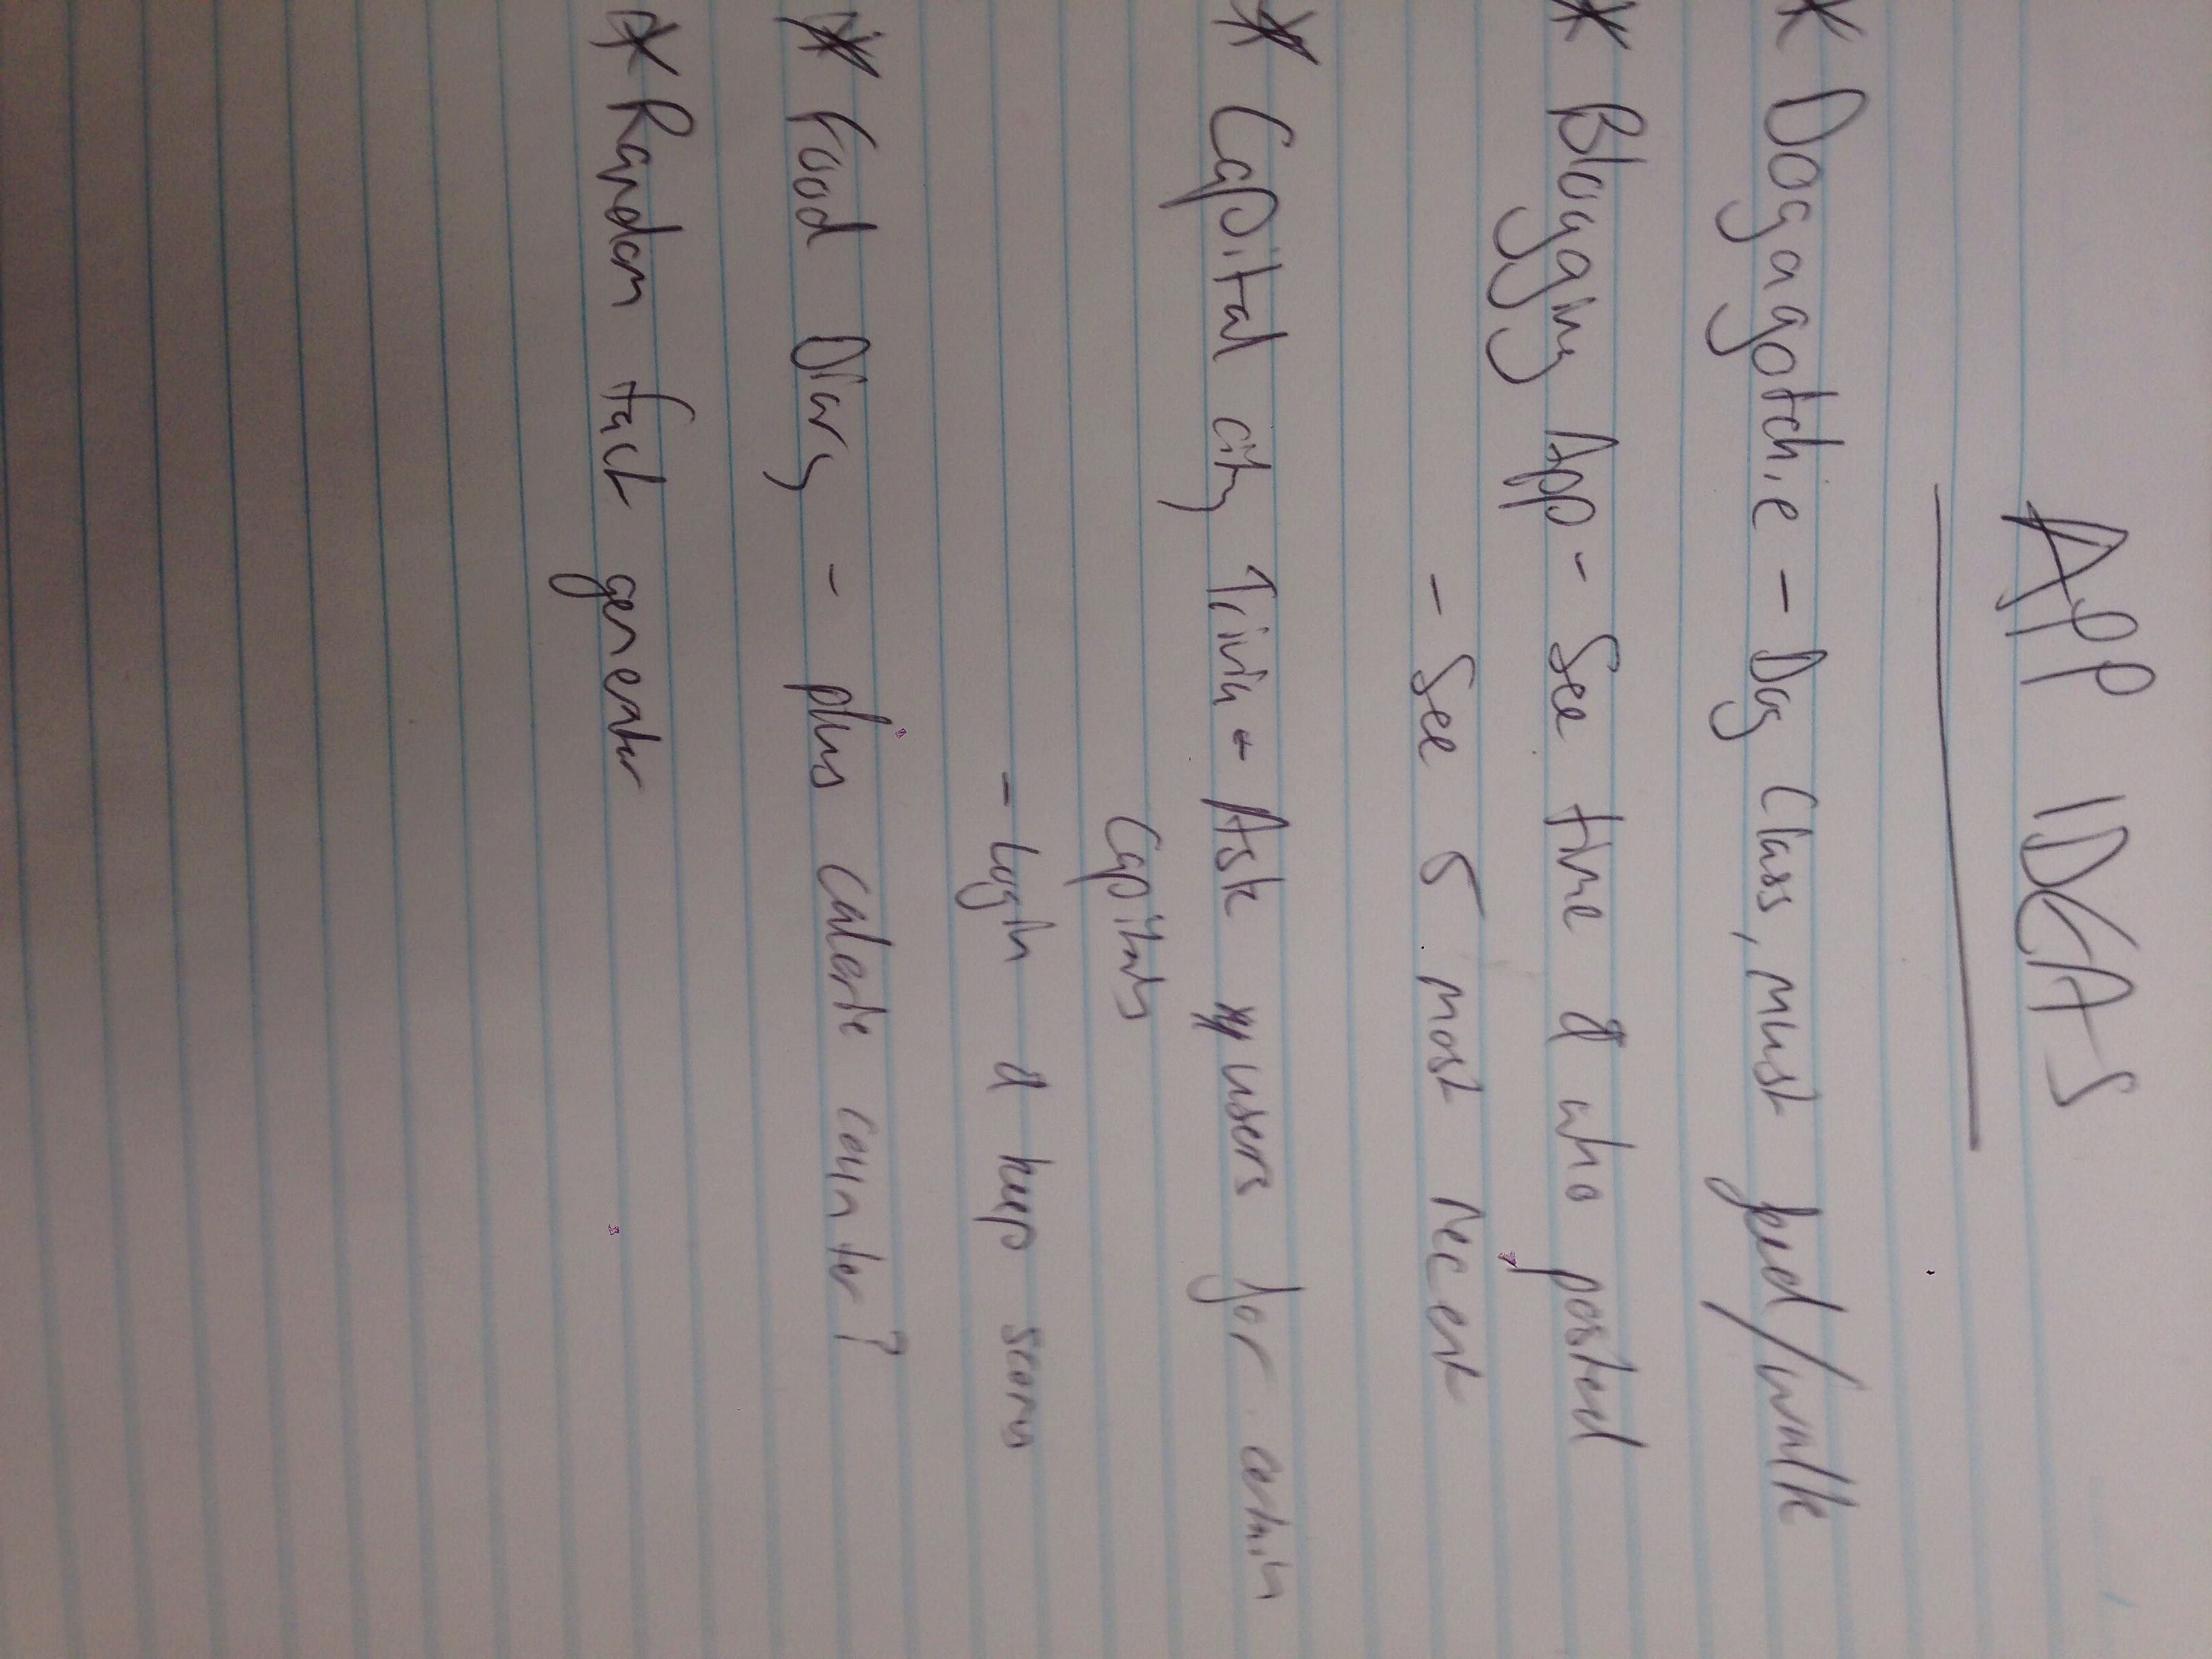 APP IDEAS
* Dogagotchie - Dog Class, must feed/walk
* Blogging App - See time & who posted
- See 5 most recent
* Capital city Trivia - Ask users for certain
Capitals
- Login & keep scores
* Food Diary - plus calorie counter?
* Random fact generator